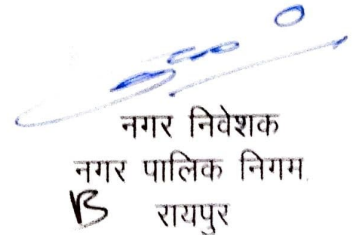 नगर निवेशक
नगर पालिक निगम
रायपुर